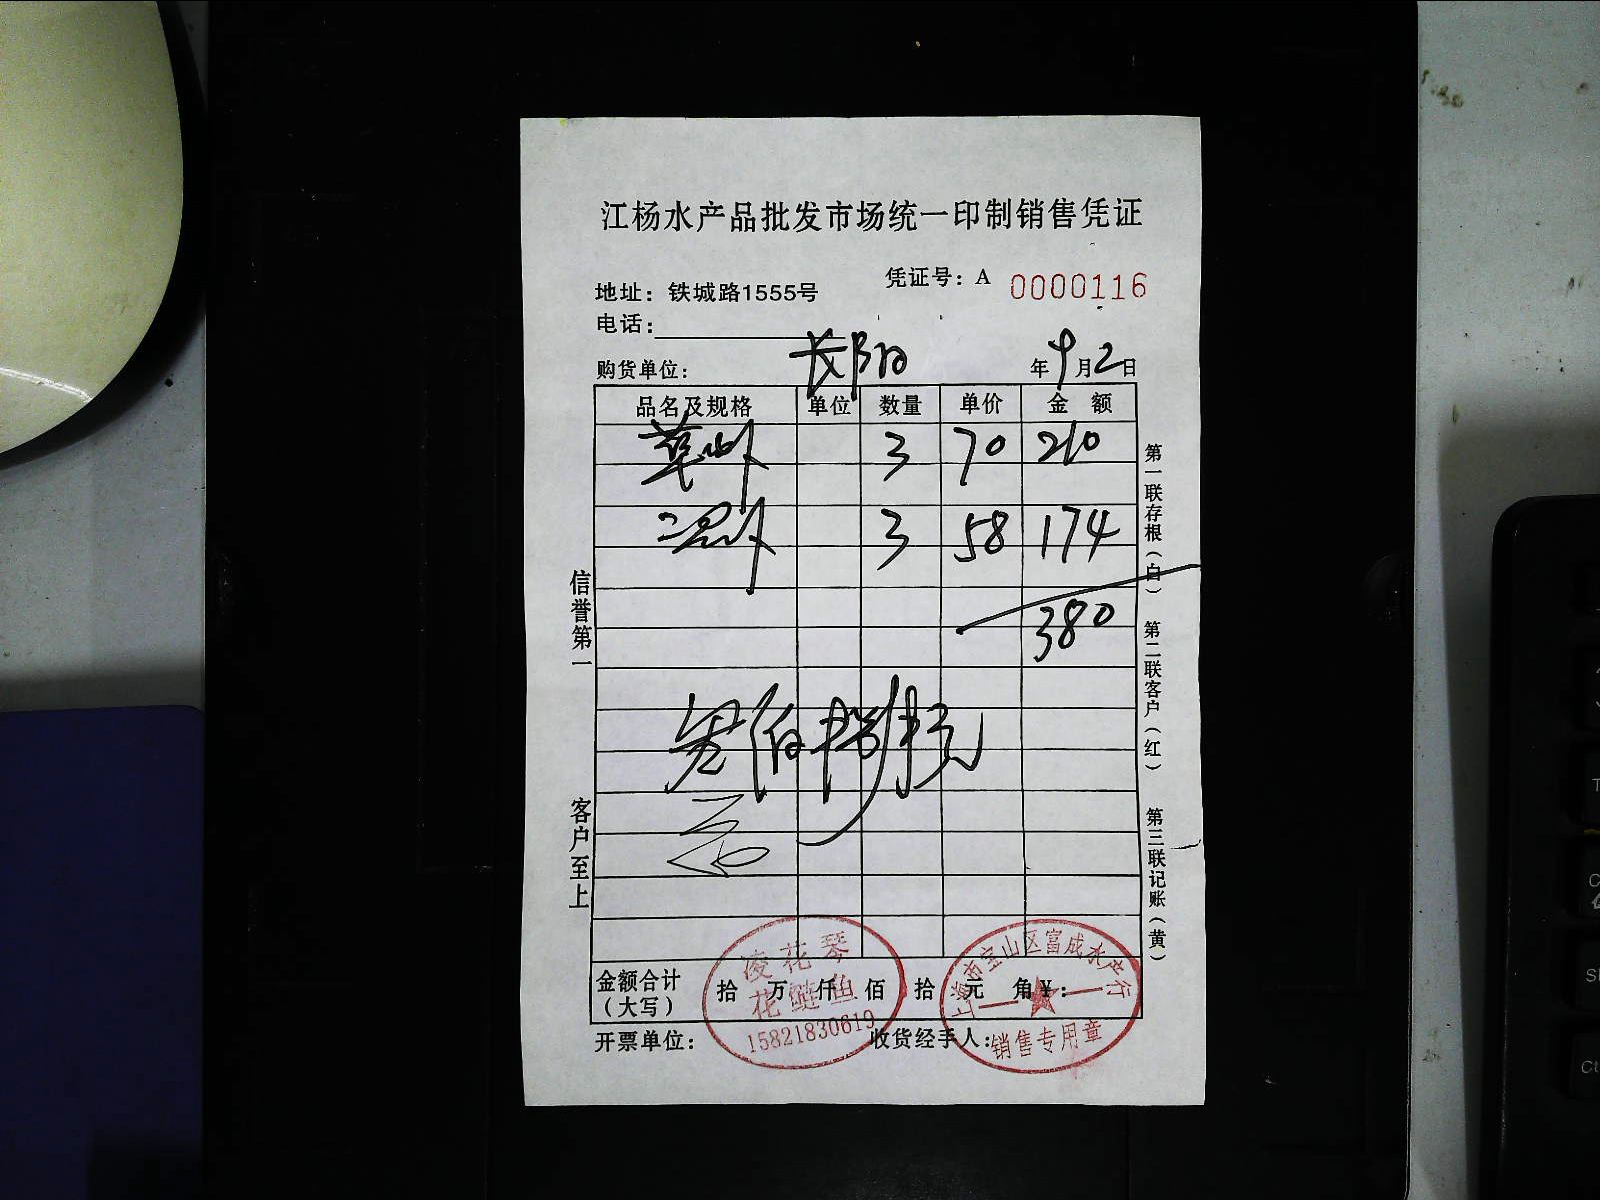 江杨水产品批发市场统一印制销售凭证
凭证号：A 0000116
地址：铁城路1555号
电话：
购货单位： 长阳 年 9 月 2 日
品名及规格 单位 数量 单价 金 额
3 70 210
3 58 174
380
信誉第一
客户至上
第一联存根（白）
第二联客户（红）
第三联记账（黄）
金额合计（大写） 拾 万 仟 佰 拾 元 角 ¥：
开票单位： 收货经手人：
凌花琴
花鲢鱼
15821830619
上海市宝山区富成水产行
销售专用章